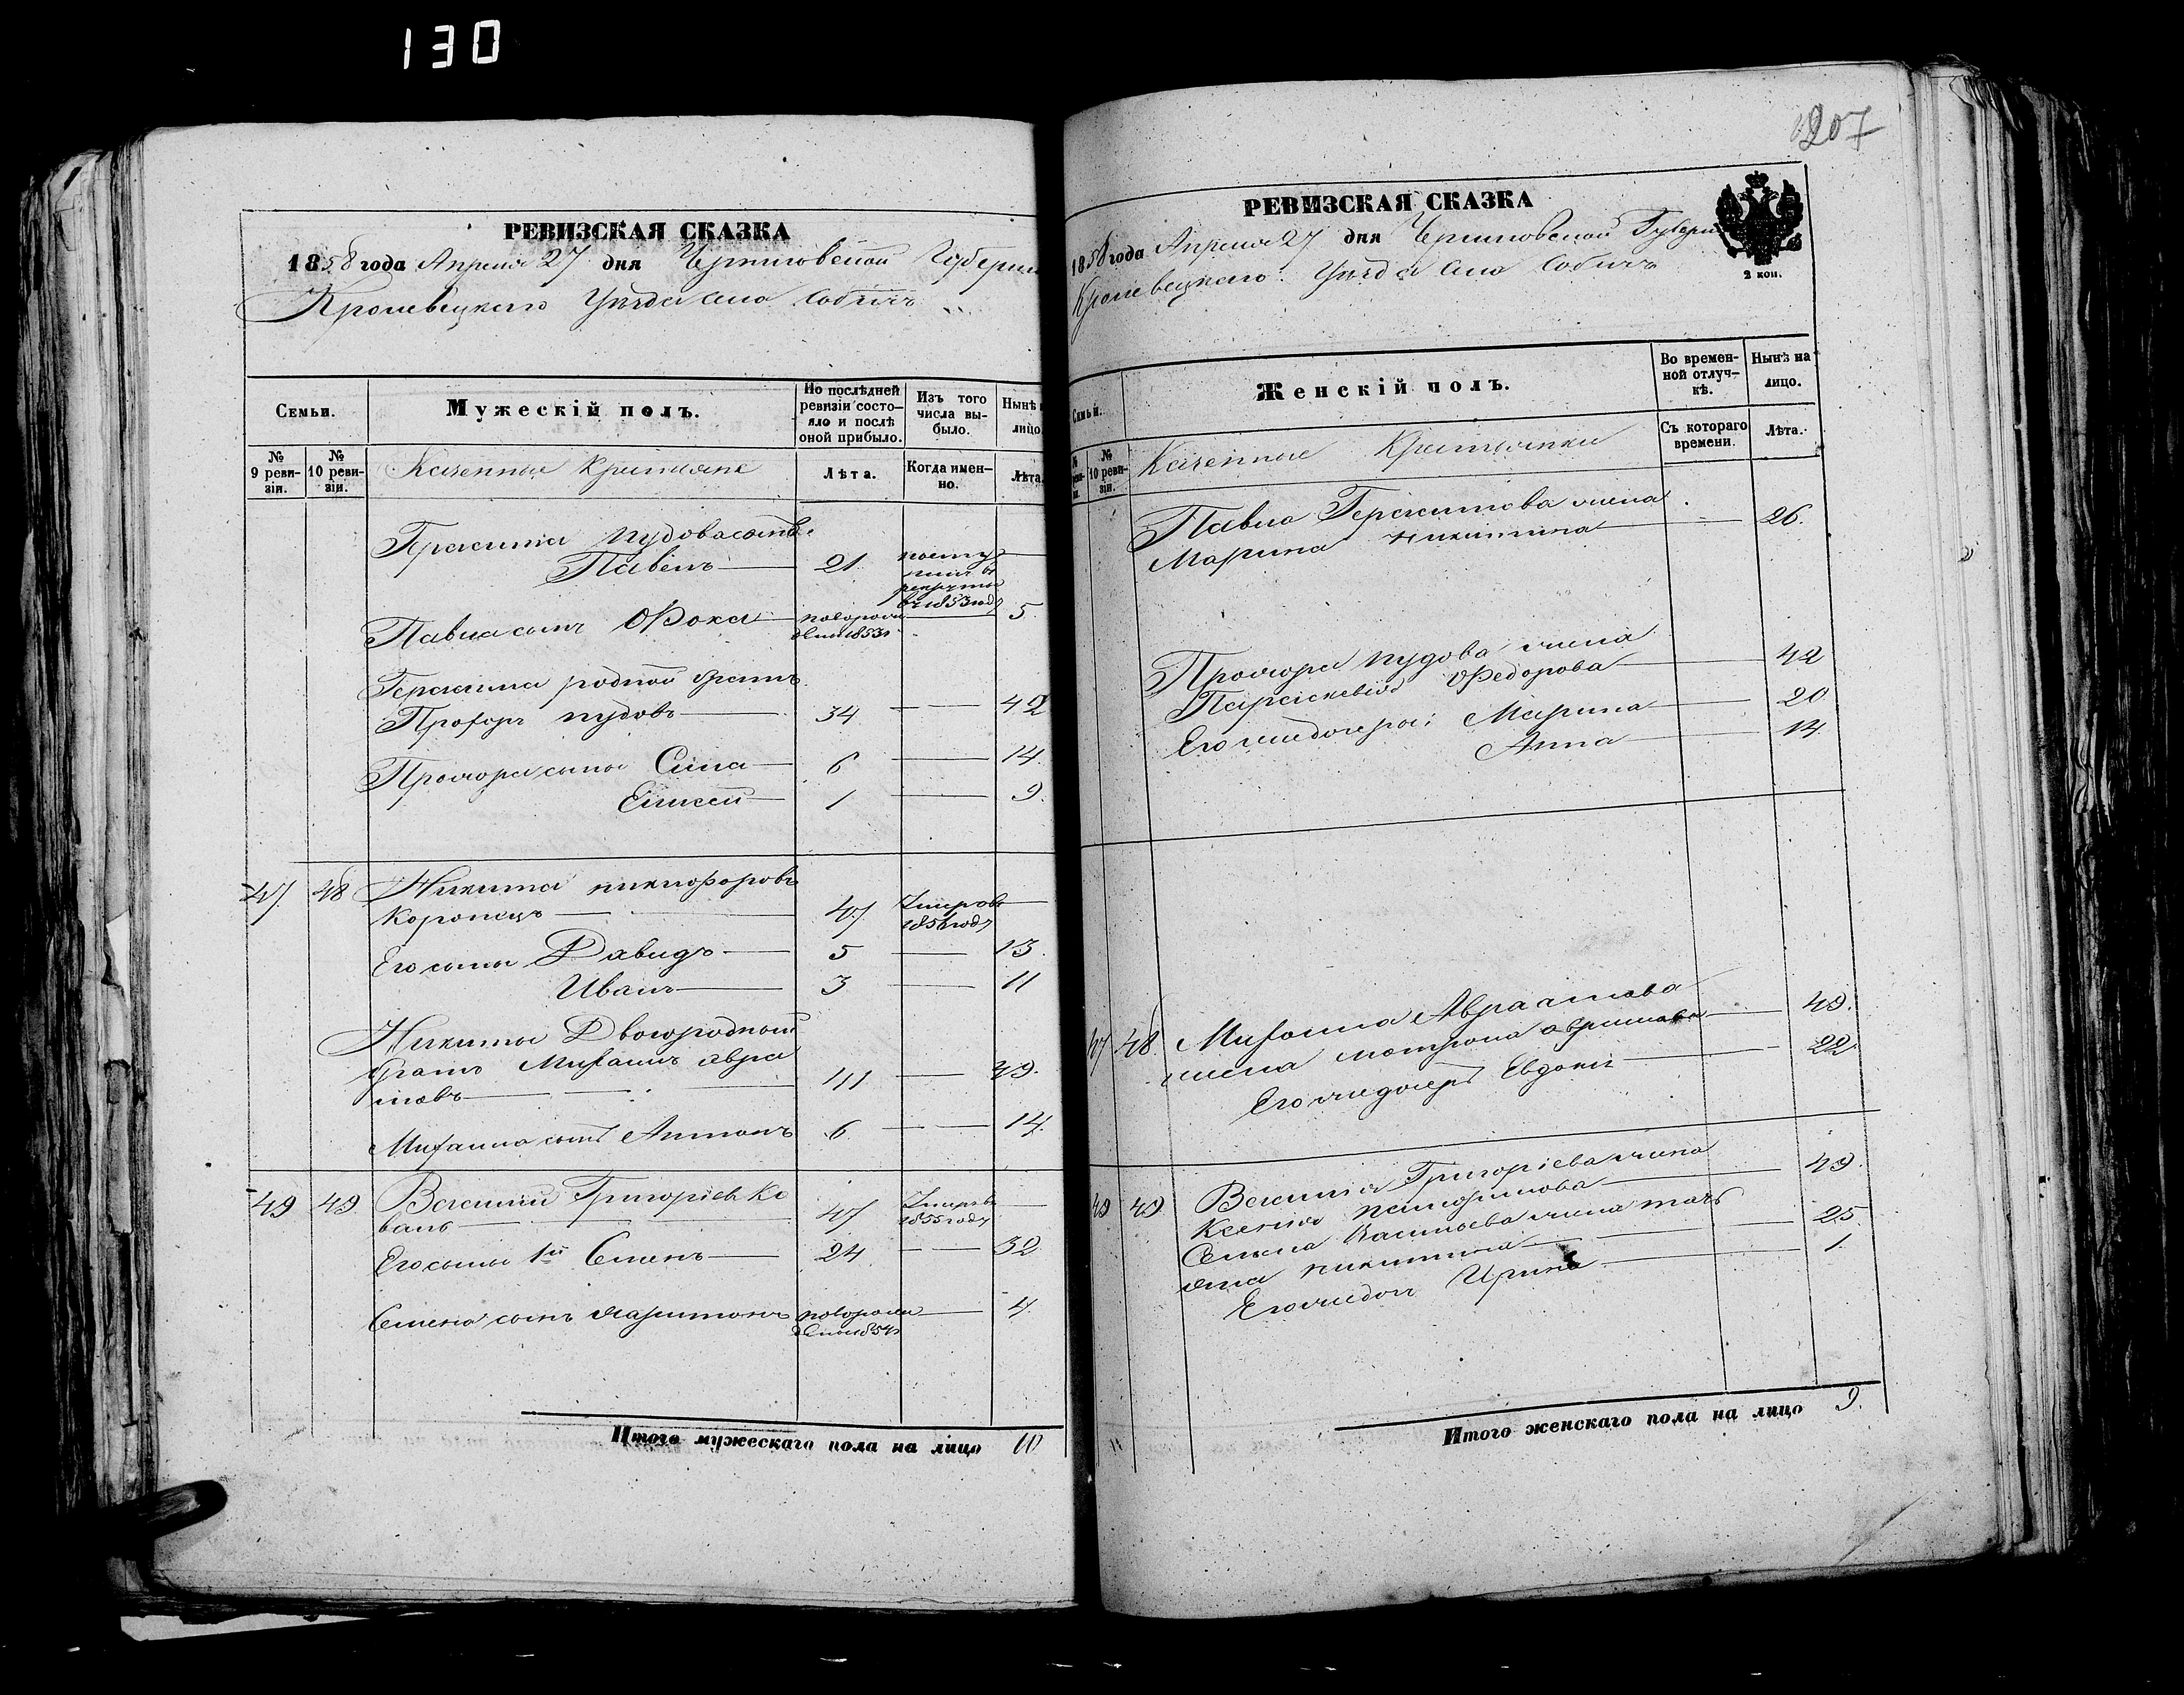 130
РЕВИЗСКАЯ СКАЗКА
1858 года Апреля 27 дня Черниговской Губерни
Кролевецкаго Уѣзда Села Собичъ
Семьи.
Мужескiй полъ.
По послѣдней ревизiи состо-
яло и послѣ
оной прибыло.
Изъ того
числа вы-
было.
Нынѣ
лицо
№
9 реви-
зiи.
№
10 реви-
зiи.
Казенные Крестьяне
Лѣта.
Когда имен-
но.
Лѣта.
Герасима Пудова сынъ
Павелъ 21 посту
пилъ въ
рекруты
въ 1853 году
Павла сынъ Фока новорож
денъ 1853 5
Герасима родной братъ
Прохоръ Пудовъ 34 42
Прохора сыны Сила 6 14.
Елисей 1 9.
47 48 Никита Никифоровъ
Коропецъ 47 Умеръ въ
1856 году
Его сыны Давидъ 5 13.
Иванъ 3 11
Никиты Двоюродный
братъ Михаилъ Авра
мовъ 41 49.
Михаила сынъ Антонъ 6. 14.
49 49 Василий Григорiевъ Ко
валь 47 Умеръ въ
1855 году
Его сыны 1й Семенъ 24 32
Семена сынъ Харитонъ новорож
денъ 1854 4
Итого мужескаго пола на лицо 10
207
РЕВИЗСКАЯ СКАЗКА
1858 года Апреля 27 дня Черниговской Губерни
Кролевецкаго Уѣзда Села Собичъ
2 коп.
Семьи.
Женскiй полъ.
Во времен-
ной отлуч-
кѣ.
Нынѣ на
лицо.
№
№
10 реви-
зiи.
Казенные Крестьянки
Съ котораго
времени.
Лѣта.
Павла Герасимова жена
Марина Никитина 26.
Прохора Пудова жена
Параскевiя Федорова 42
Его же дочери: Марина 20
Анна 14
47 48. Михаила Авраамова
жена Мотрона Аврамова 49.
Его же дочерь Евдокия 22
49 49 Василия Григорiева жена
Ксения 49.
Семена Васильева жена Тать
яна Никитина 25.
Его же дочь Ирина 1.
Итого женскаго пола на лицо 9.